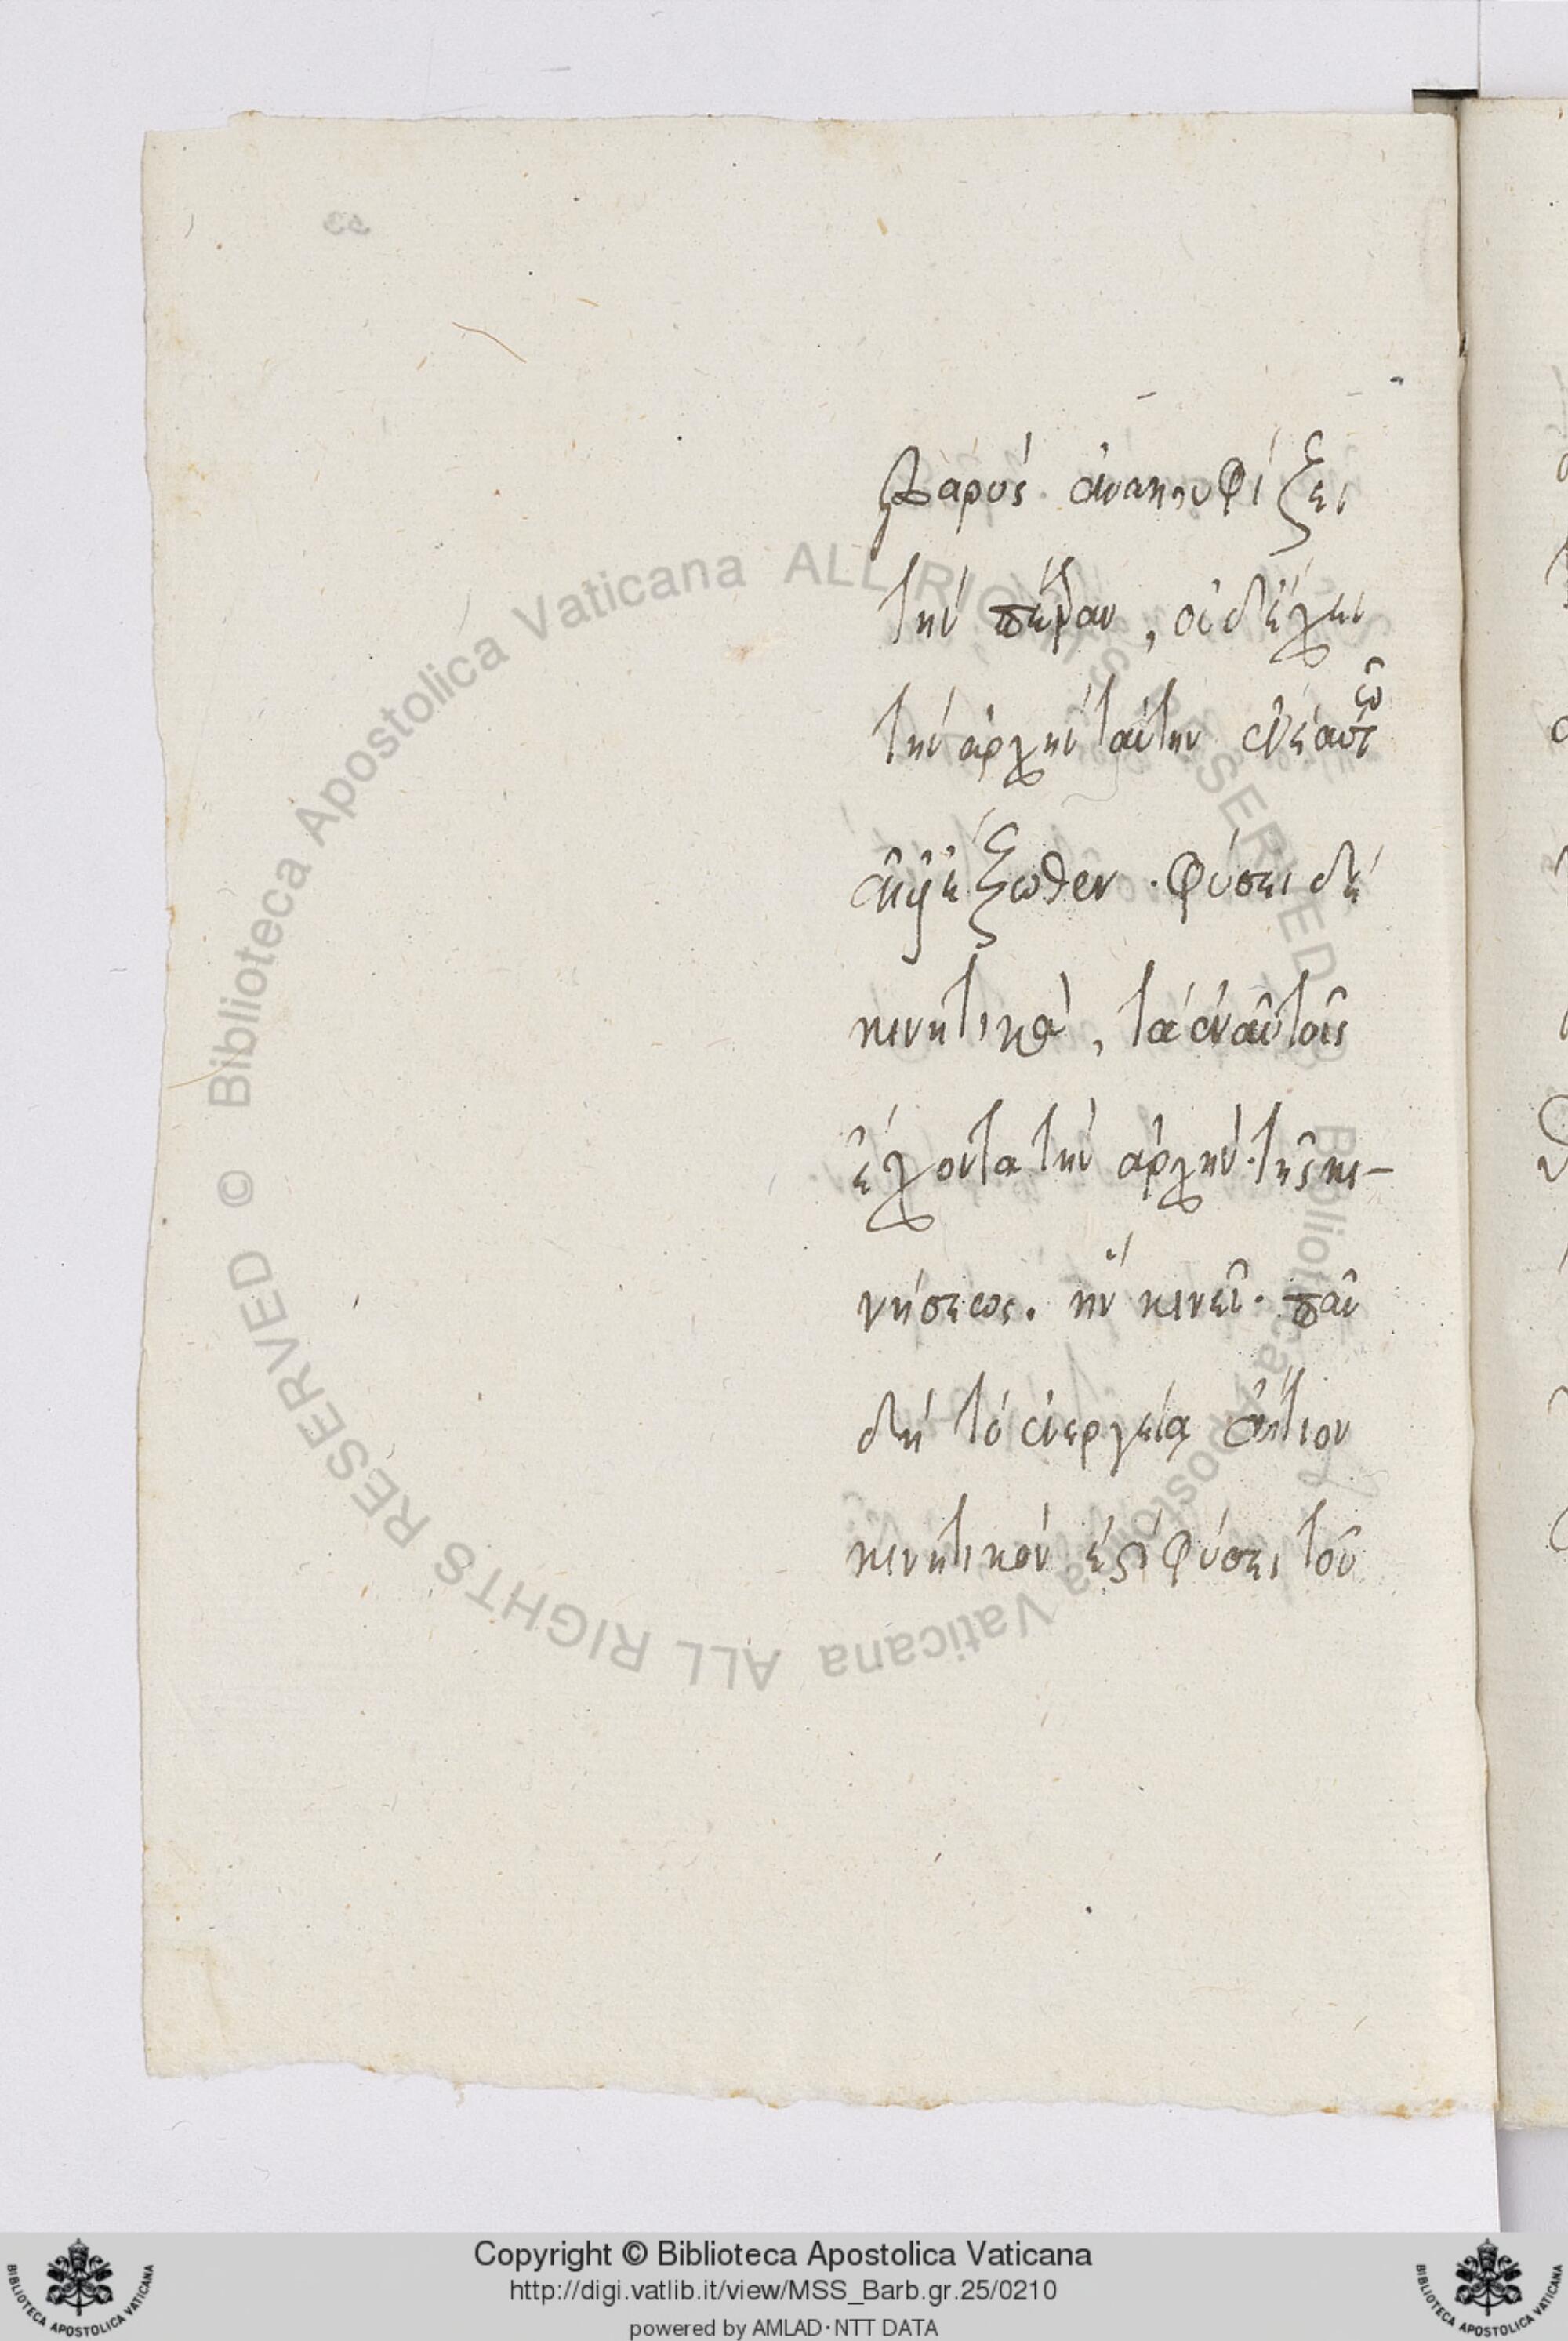 βαρὺς ἀνακουφίζει
τὴν πέτραν, οὐδ' ἔχει
τὴν ἀρχὴν ταύτην ἐν ἑαυτῶ
ἔξωθεν. φύσει δὲ
κινητικὰ, τὰ ἐν αὐτοῖς
ἔχοντα τὴν ἀρχὴν τῆς κι-
νήσεως. ἣν κινεῖ. πᾶν
δὴ τὸ ἐνεργεία αἴτιον
κινητικόν ἐστι φύσει τοῦ
© Biblioteca Apostolica Vaticana ALL RIGHTS RESERVED
© Biblioteca Apostolica Vaticana ALL RIGHTS RESERVED
Copyright © Biblioteca Apostolica Vaticana
http://digi.vatlib.it/view/MSS_Barb.gr.25/0210
powered by AMLAD·NTT DATA
BIBLIOTECA APOSTOLICA VATICANA
BIBLIOTECA APOSTOLICA VATICANA